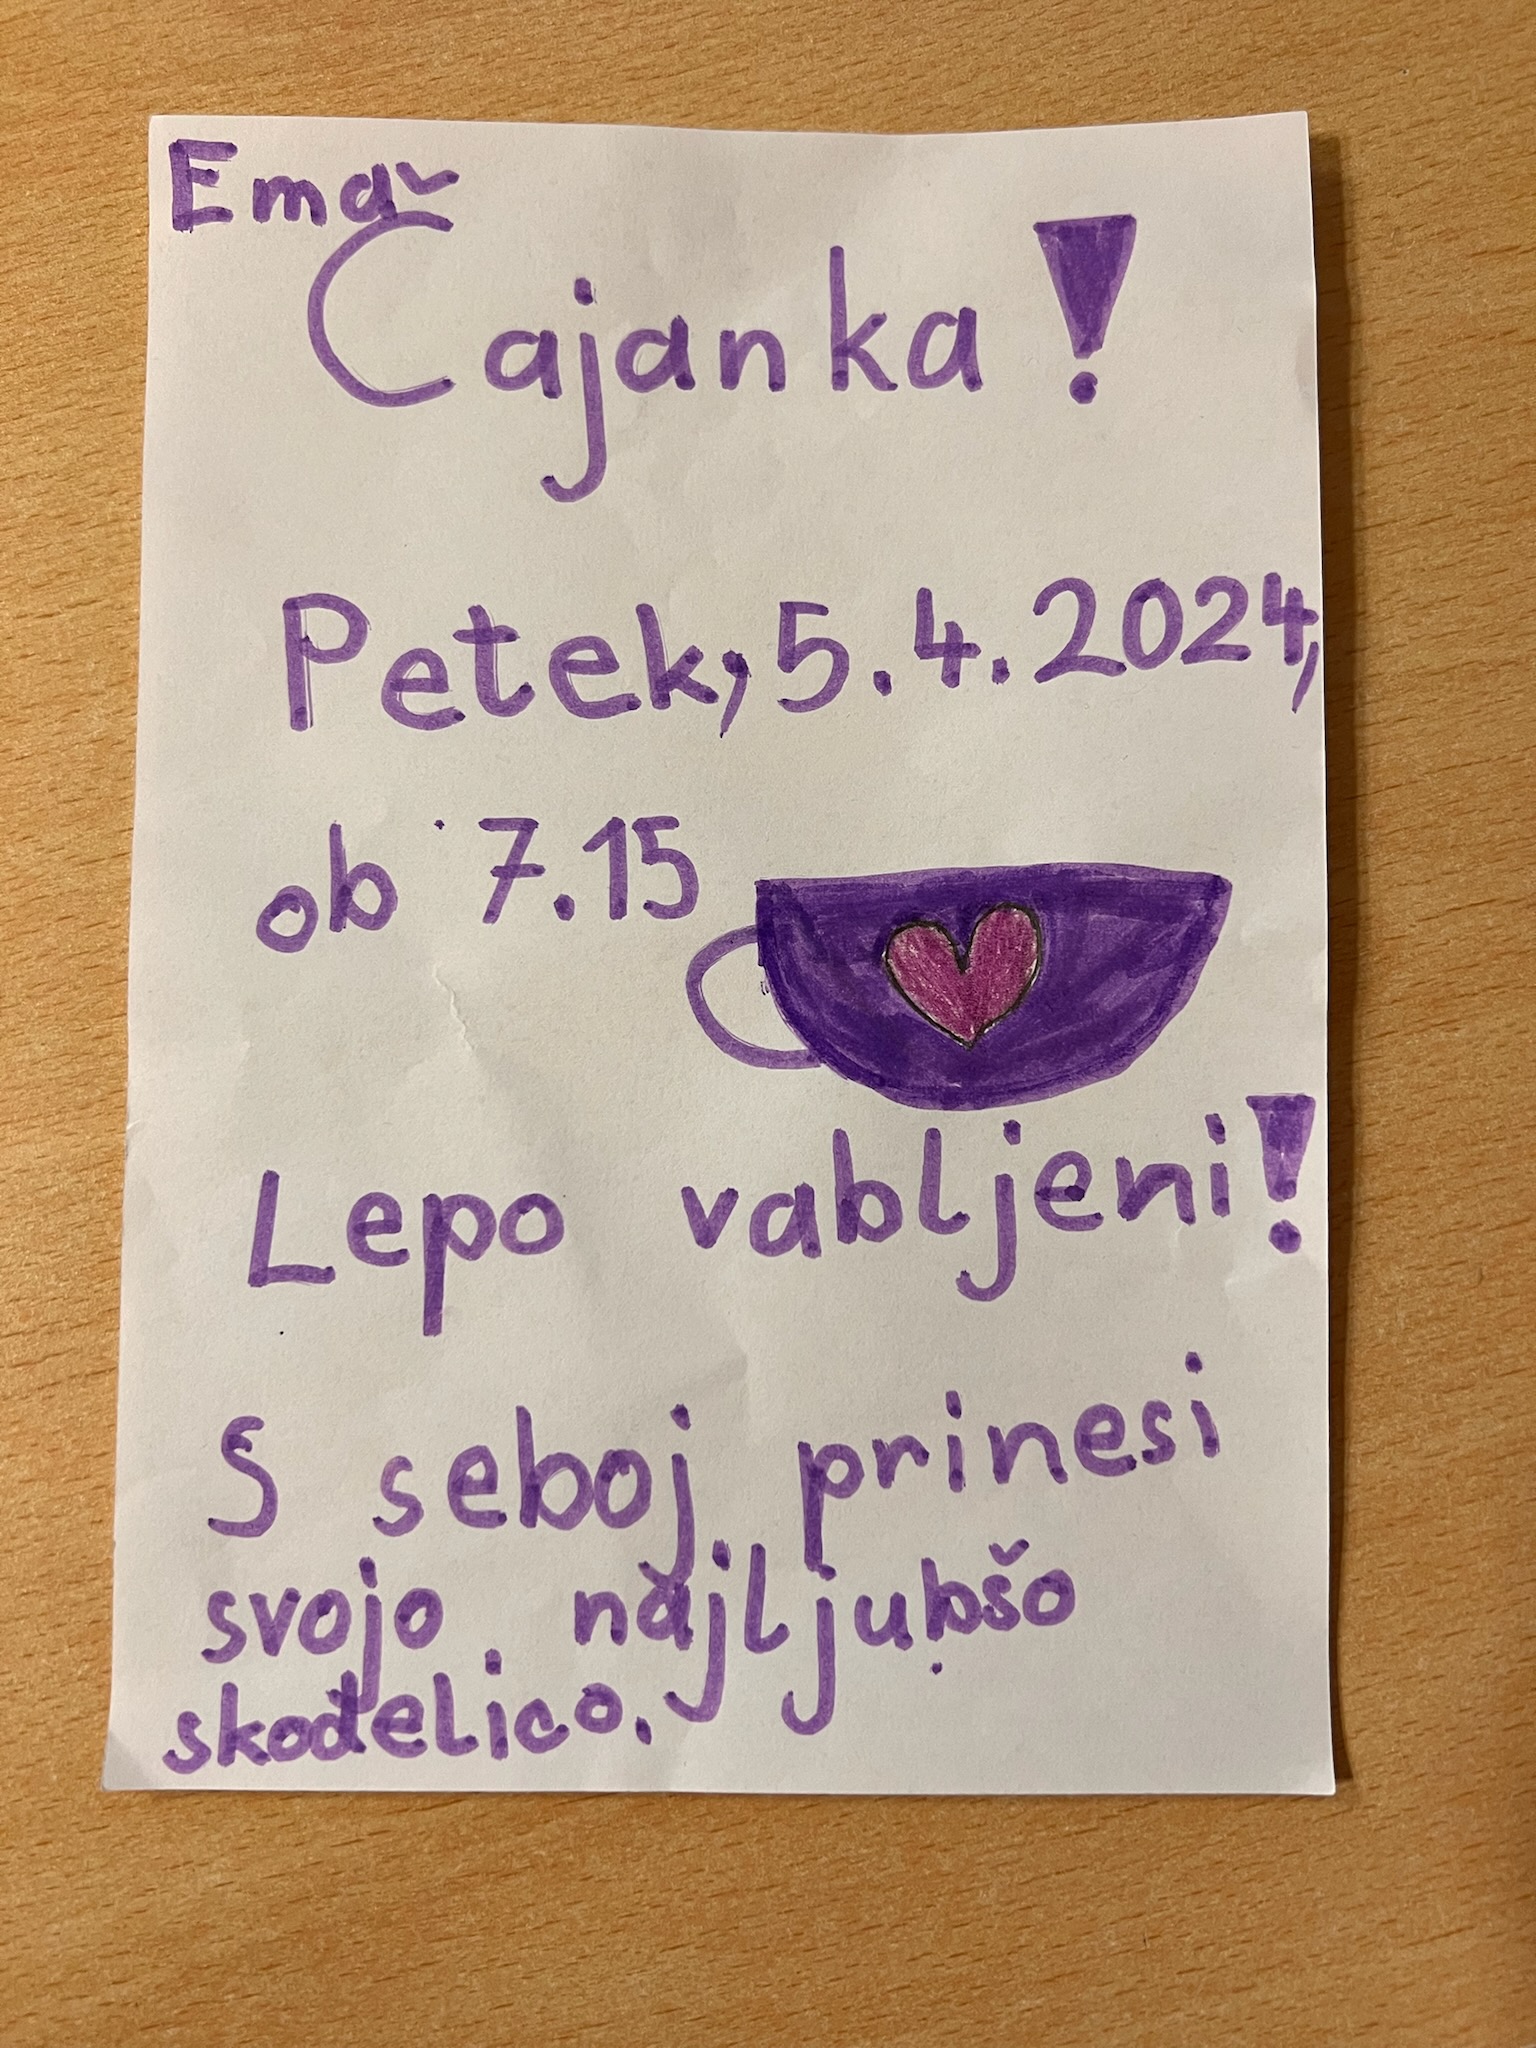 Ema
Čajanka!
Petek, 5.4.2024,
ob 7.15
Lepo vabljeni!
S seboj prinesi
svojo najljubšo
skodelico.